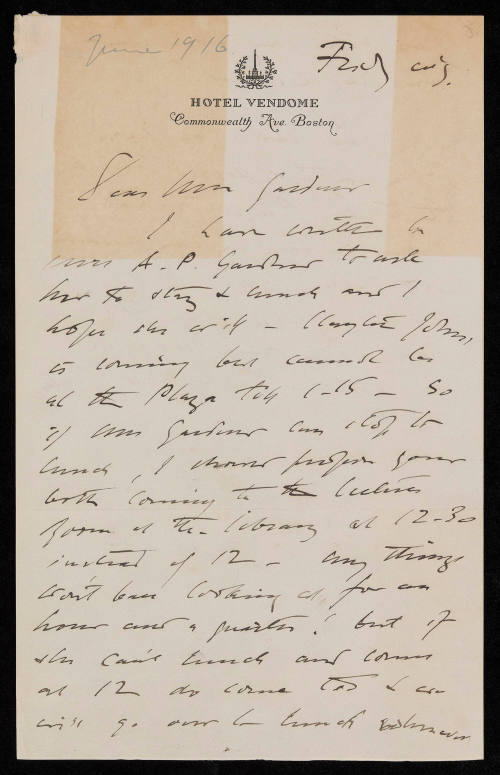 June 1916.
Friday evg.
HOTEL VENDOME
Commonwealth Ave. Boston
Dear Mrs Gardner
I have written to
Mrs A. P. Gardner to ask
her to stay & lunch and I
hope she will - Clayton Johns,
is coming but cannot be
at the Plaza till 1-15 - So
if Mrs Gardner can stop to
lunch, I should propose your
both coming to the lecture
room at the library at 12-30
instead of 12 - my things
won't bear looking at for an
hour and a quarter! but if
she can't lunch and comes
at 12 do come too & we
will go over to lunch whenever